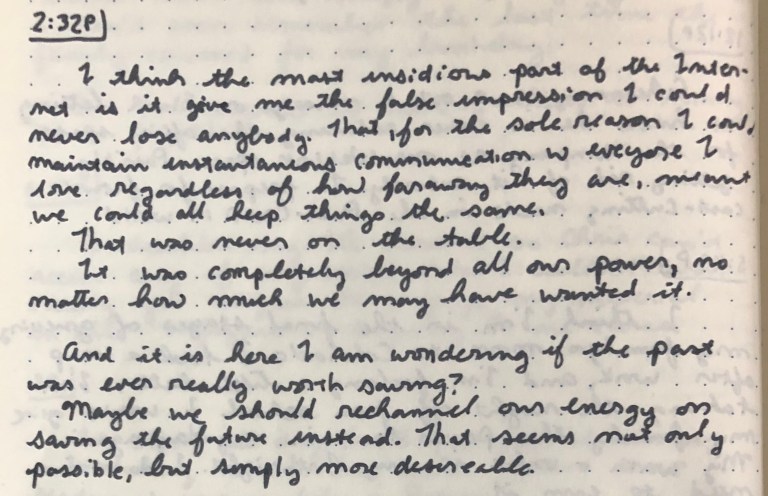 2:32P
I think the most insidious part of the Inter-
net is it give me the false impression I could
never lose anybody. That, for the sole reason I coul,
maintain instantaneous communication w everyose I
love regardless of how faraway they are, meant
we could all keep things the same.
That was never on the table.
It was completely beyond all our power, no
matter how much we may have wanted it.
And it is here I am wondering if the past
was ever really worth saving?
Maybe we should rechannel our energy on
saving the future instead. That seems not only
possible, but simply more desireable.